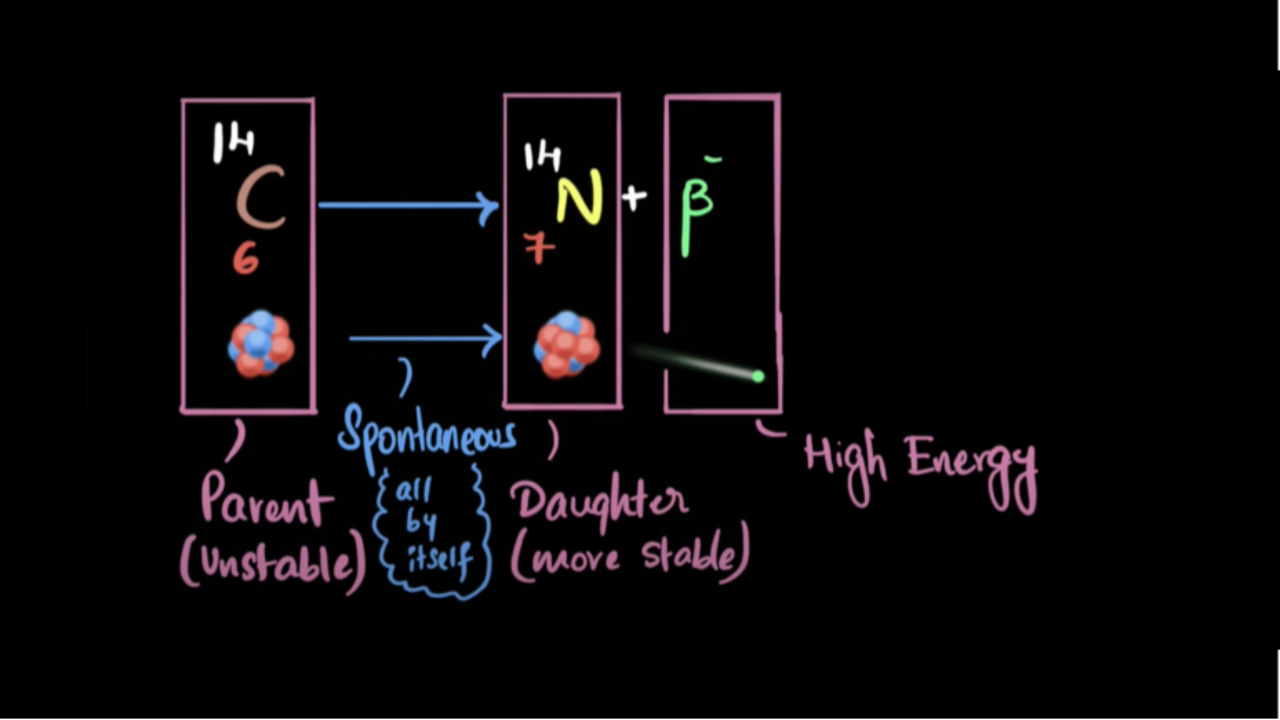 14
C
6
14
N
7
+
β⁻
Parent
(Unstable)
Spontaneous
all
by
itself
Daughter
(more stable)
High Energy